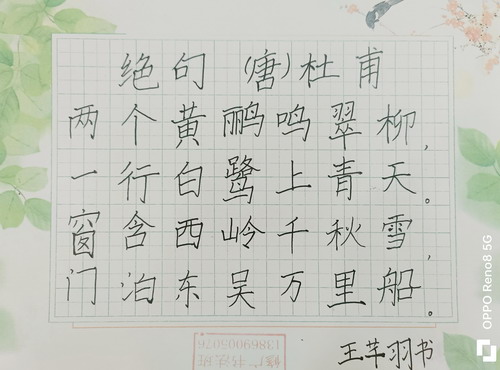 绝句 (唐)杜甫
两个黄鹂鸣翠柳,
一行白鹭上青天。
窗含西岭千秋雪,
门泊东吴万里船。
王芊羽书
OPPO Reno8 5G